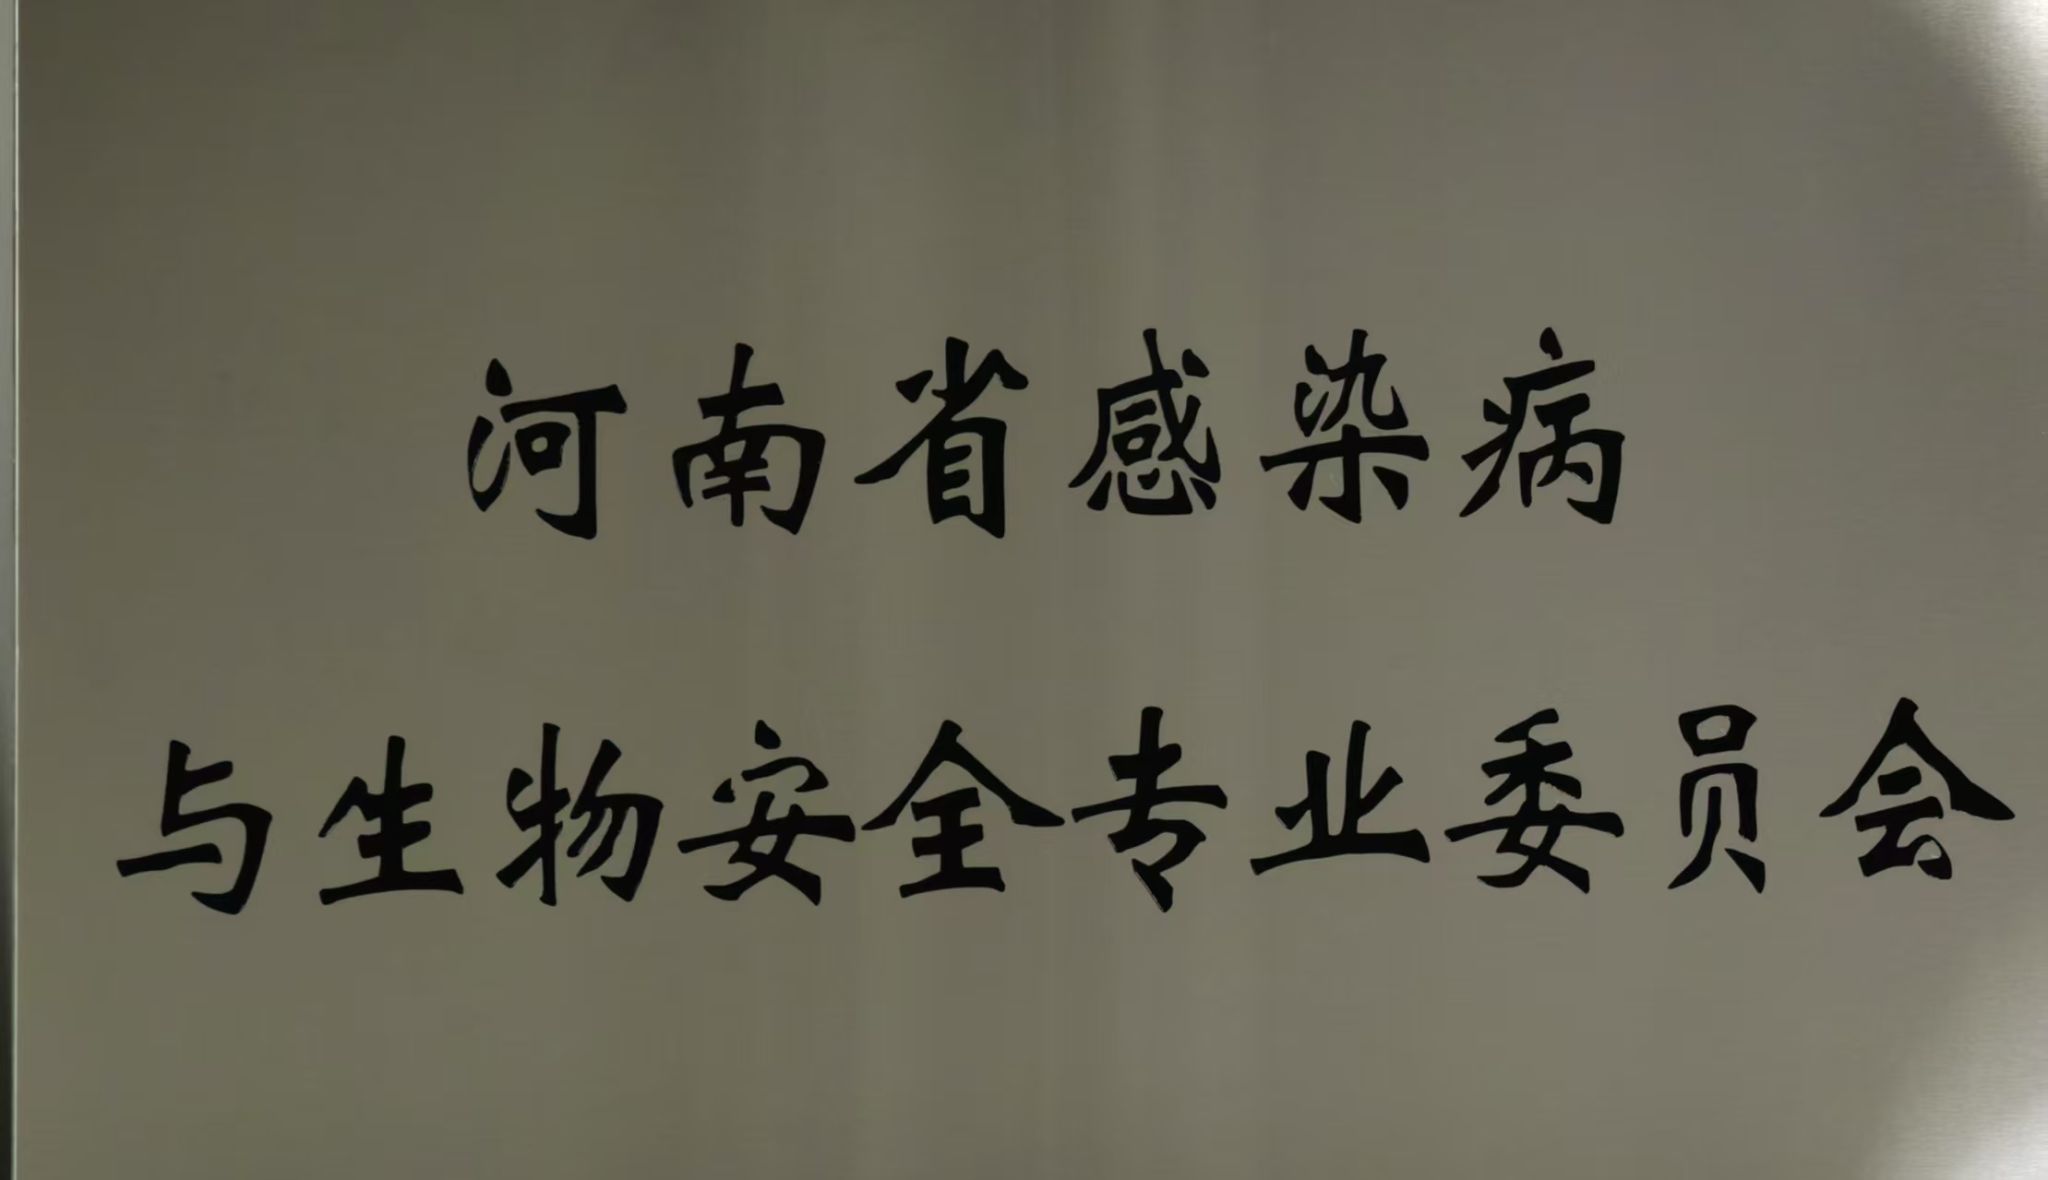 河南省感染病
与生物安全专业委员会